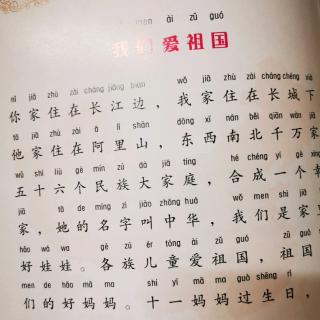 men ài zǔ guó
我们爱祖国
nǐ jiā zhù zài cháng jiāng biān wǒ jiā zhù zài cháng chéng xià
你家住在长江边，我家住在长城下
tā jiā zhù zài ā lǐ shān dōng xī nán běi qiān wàn jiā
他家住在阿里山，东西南北千万家
wǔ shí liù gè mín zú dà jiā tíng hé chéng yí gè xìng
五十六个民族大家庭，合成一个幸
jiā tā de míng zi jiào zhōng huá wǒ men shì jiā lǐ
家，她的名字叫中华，我们是家里
hǎo wá wa gè zú ér tóng ài zǔ guó zǔ guó
好娃娃。各族儿童爱祖国，祖国
men de hǎo mā ma shí yī mā ma guò shēng rì
们的好妈妈。十一妈妈过生日，